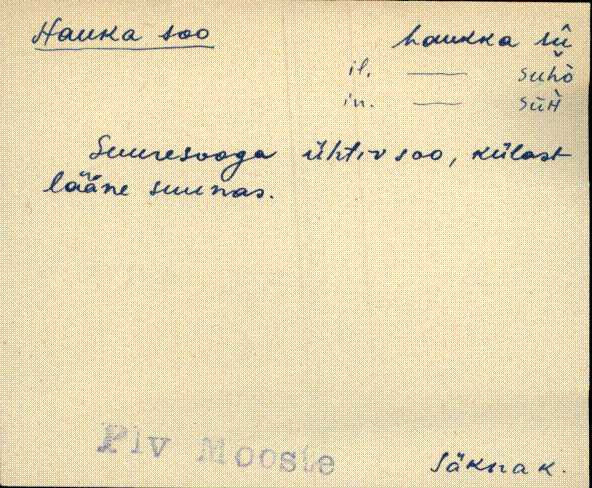 Hauka soo
haukka sū̀
il. —— suhò
in. —— sūh
Suuresooga ühtiv soo, külast
lääne suunas.
Plv Mooste
Säkna k.